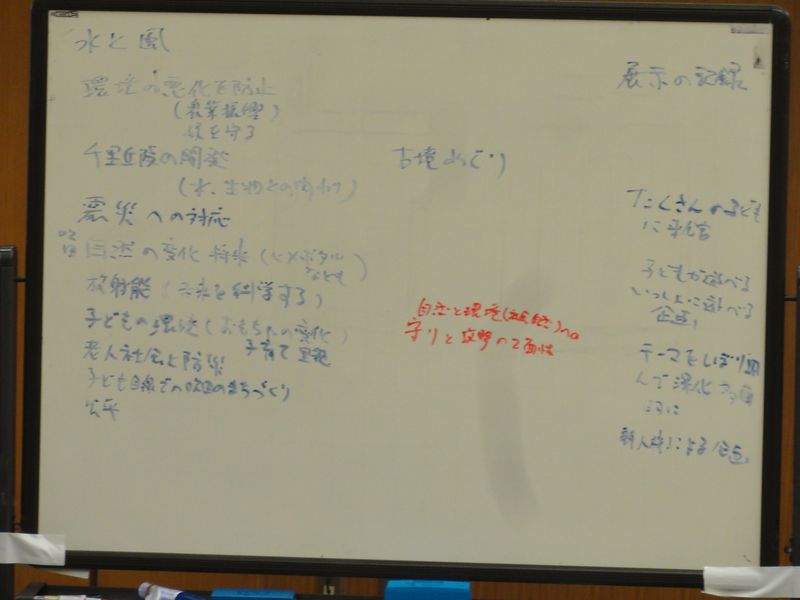 水と風
環境の悪化を防止
(農業振興)
緑を守る
千里丘陵の開発
(水、生物との関わり)
震災への対応
自然の変化 将来(ヒメボタル
なども)
放射能(未来を科学する)
子どもの環境(おもちゃの変化)
子育て
老人社会と防災
子ども目線での吹田のまちづくり
公平
古墳めぐり
自然と環境(社会)への
守りと攻撃の2面性
展示の記録
たくさんの子ども
に来館
子どもが遊べる
いっしょに遊べる
企画
テーマをしぼり
んで深化
新人類による企画